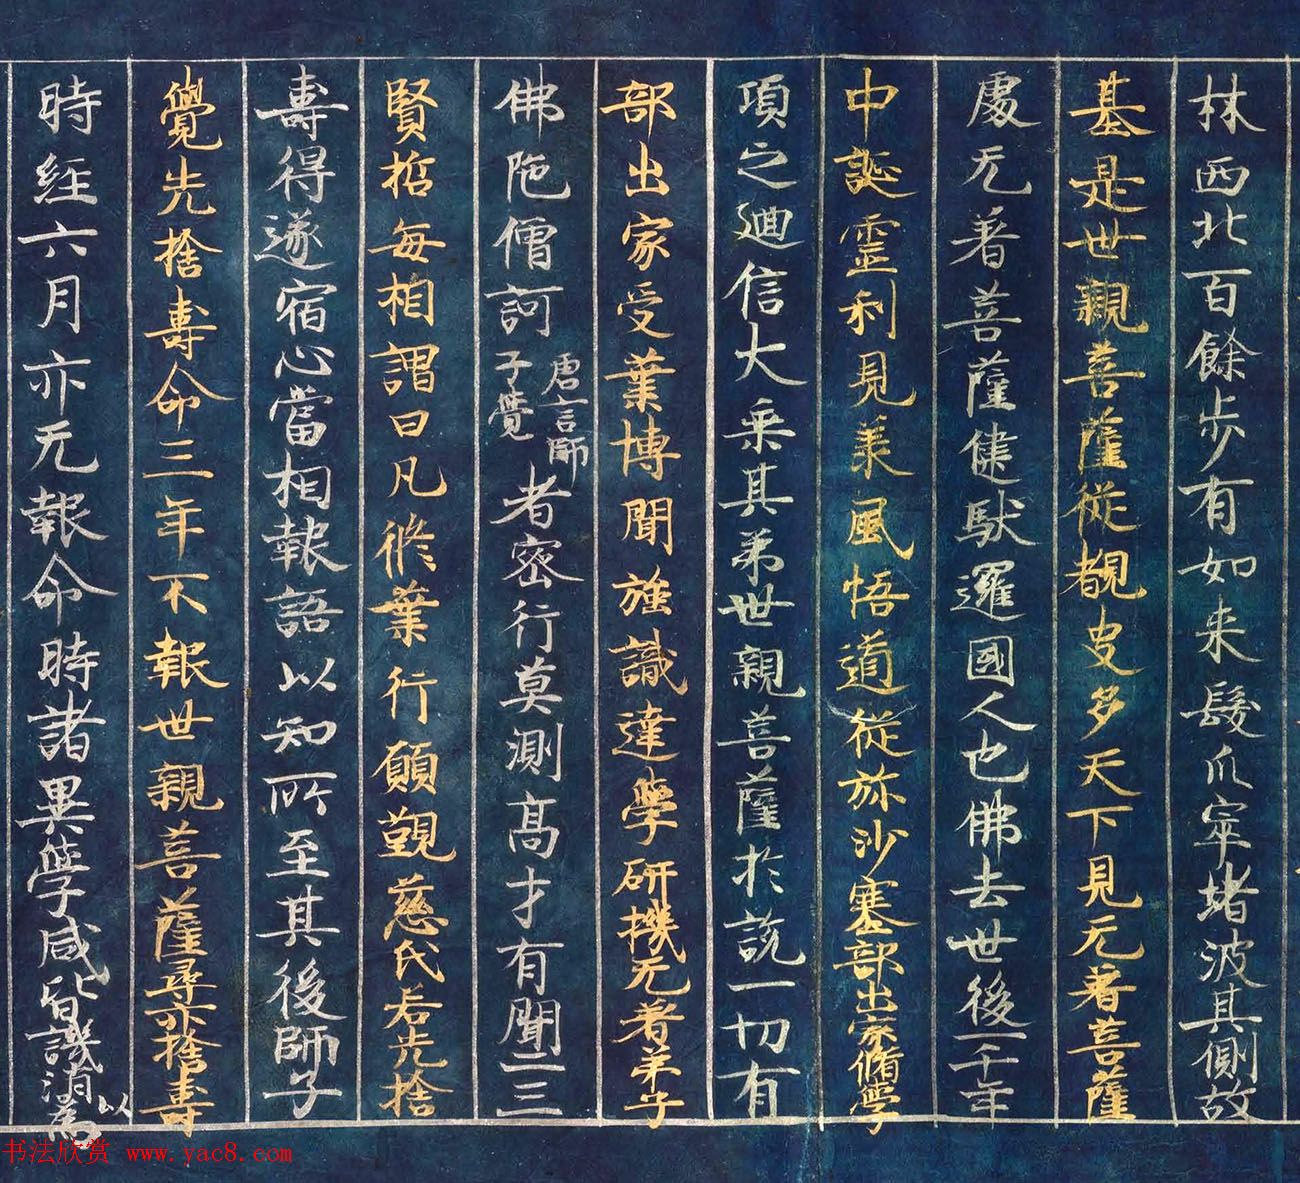 林西北百餘步有如来髮爪窣堵波其側故
基是世親菩薩從覩史多天下見无著菩薩
處无著菩薩健馱邏國人也佛去世後一千年
中誕靈利見業風悟道從弥沙塞部出家脩學
項之廻信大乘其弟世親菩薩扵說一切有
部出家受業博聞強識達學研機无著弟子
佛陁僧訶唐言師子覺者密行莫測高才有聞二三
賢哲每相謂曰凡修業行願覲慈氏若先捨
壽得遂宿心當相報語以知所至其後師子
覺先捨壽命三年不報世親菩薩尋亦捨壽
時經六月亦无報命時諸異學咸皆譏消以為
书法欣赏 www.yac8.com